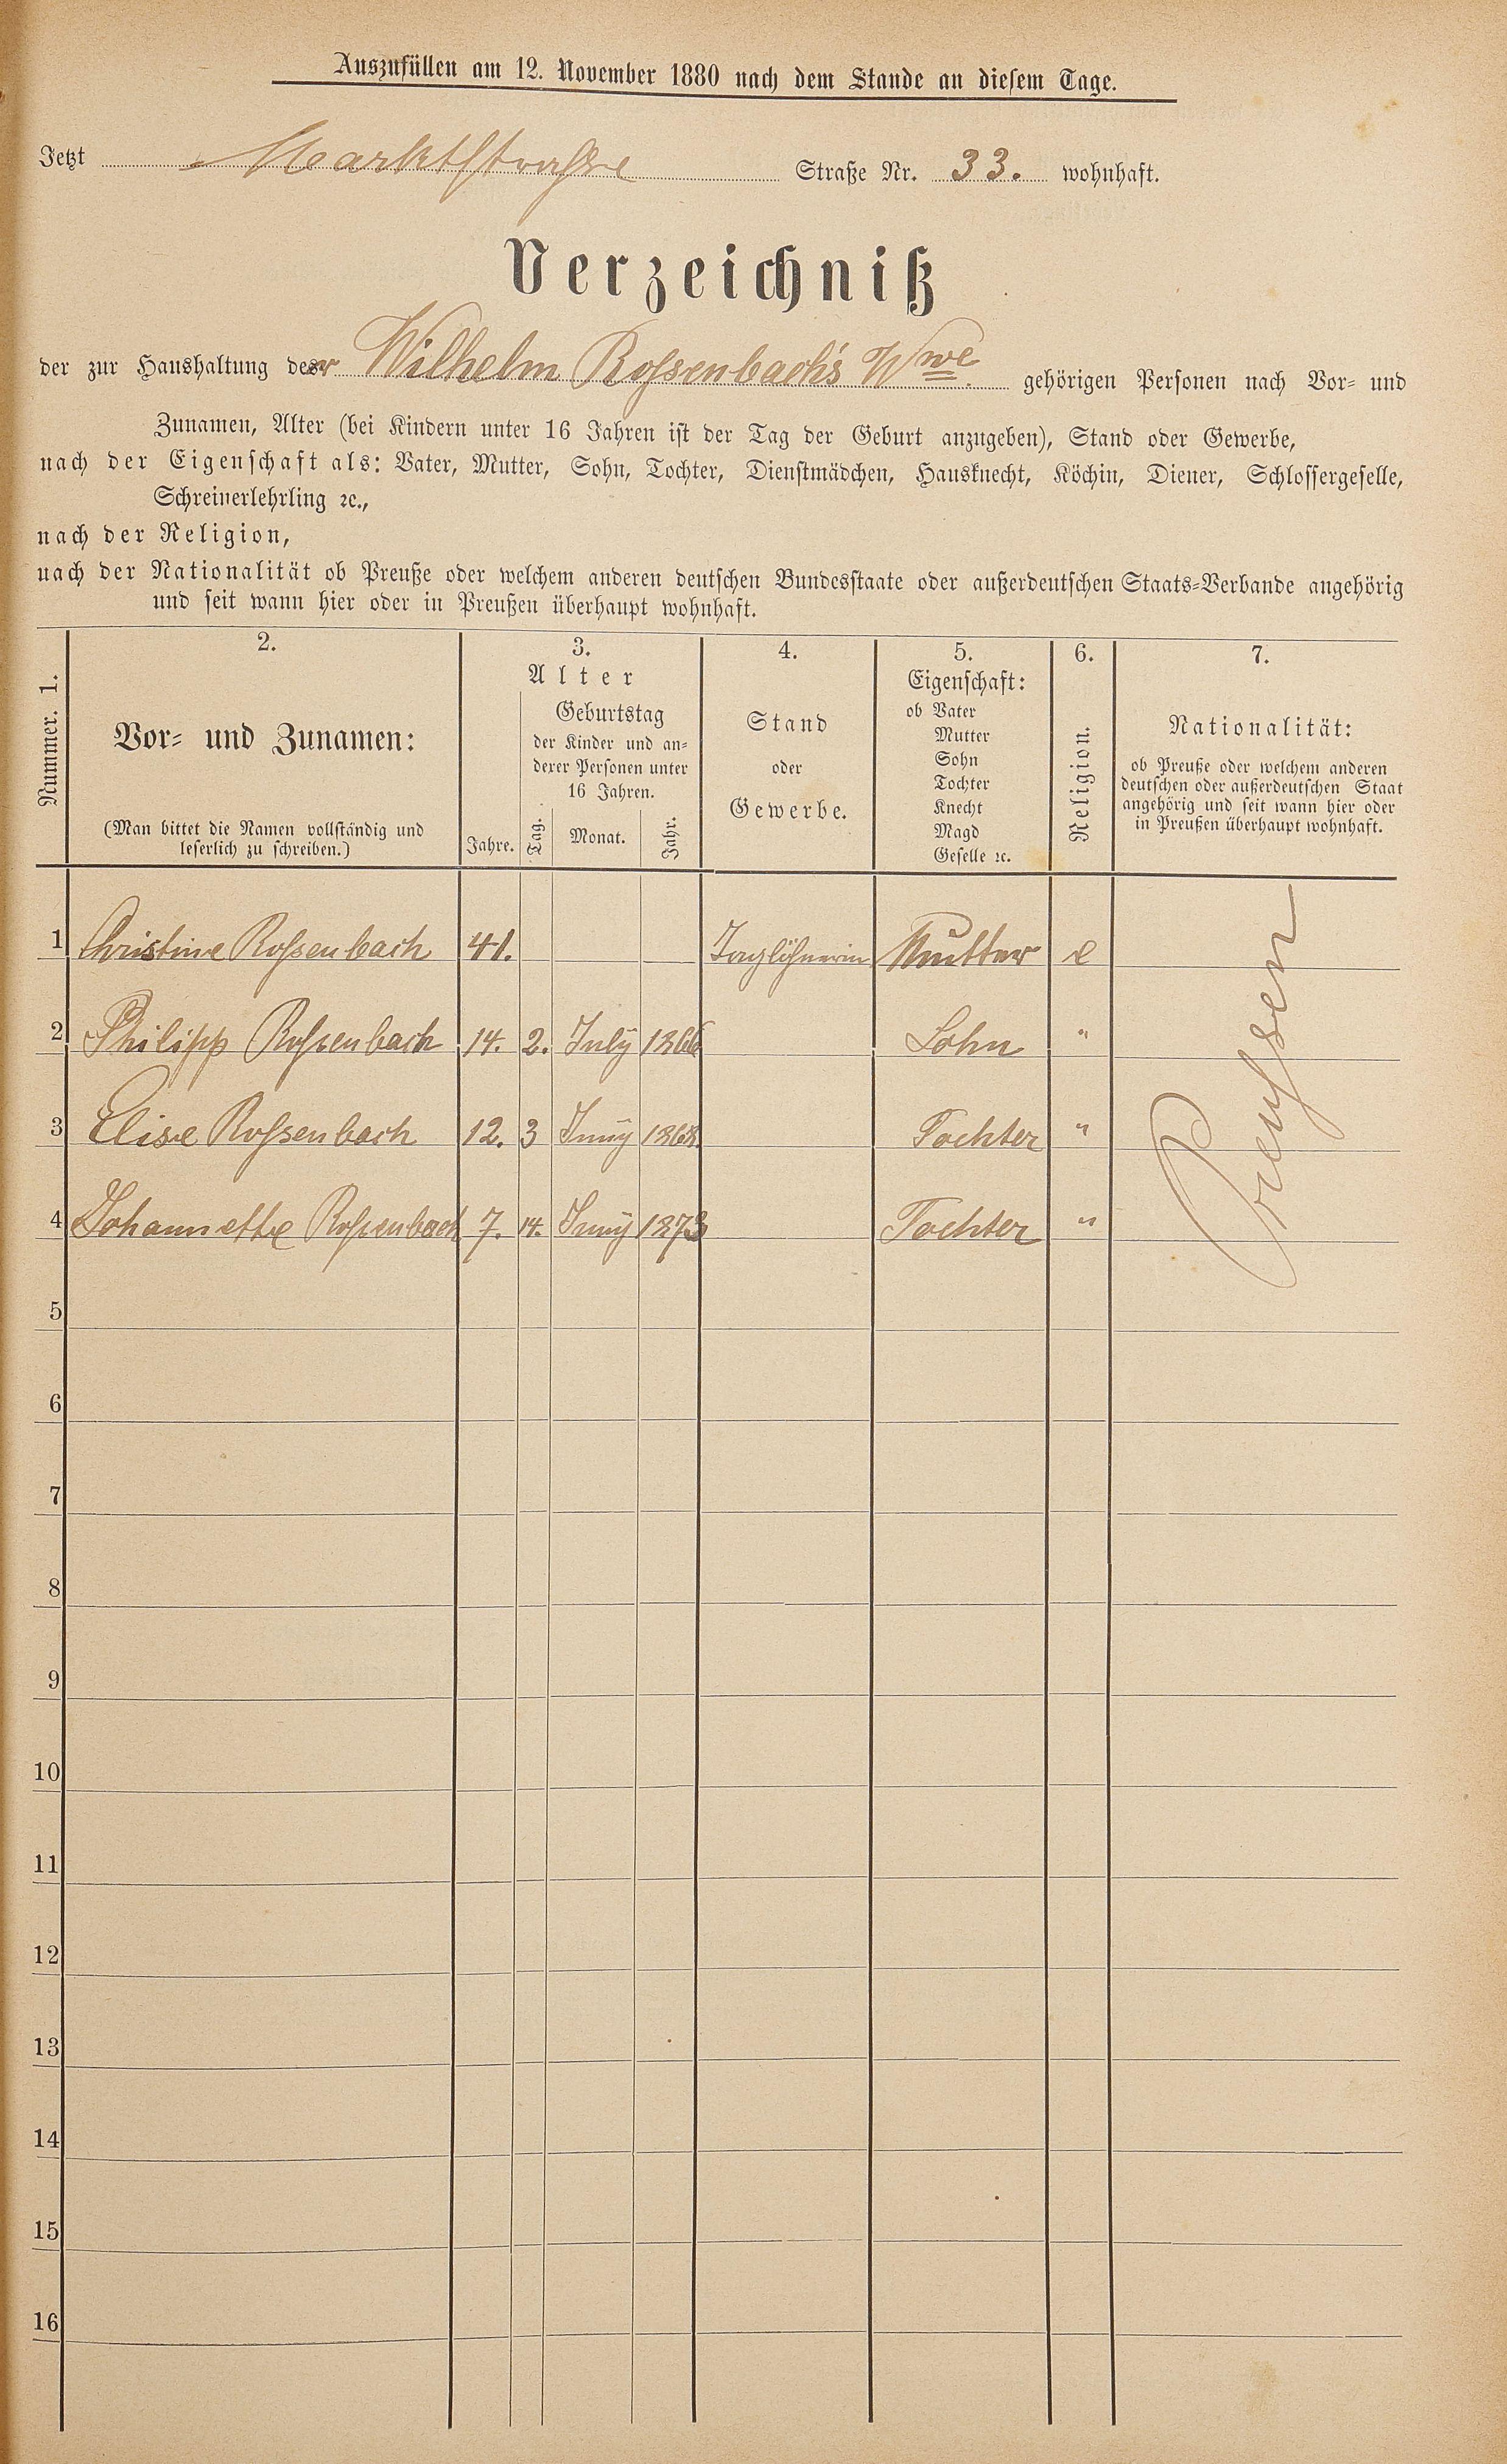 Auszufüllen am 12. November 1880 nach dem Stande an diesem Tage.
Jetzt Marktstraße Straße Nr. 33. wohnhaft.
Verzeichniß
der zur Haushaltung der Wilhelm Rossenbach's Wwe. gehörigen Personen nach Vor- und
Zunamen, Alter (bei Kindern unter 16 Jahren ist der Tag der Geburt anzugeben), Stand oder Gewerbe,
nach der Eigenschaft als: Vater, Mutter, Sohn, Tochter, Dienstmädchen, Hausknecht, Köchin, Diener, Schlossergeselle,
Schreinerlehrling ꝛc.,
nach der Religion,
nach der Nationalität ob Preuße oder welchem anderen deutschen Bundesstaate oder außerdeutschen Staats-Verbande angehörig
und seit wann hier oder in Preußen überhaupt wohnhaft.
Nummer. 1.
2.
Vor- und Zunamen:
(Man bittet die Namen vollständig und
leserlich zu schreiben.)
3.
Alter
Geburtstag
der Kinder und an-
derer Personen unter
16 Jahren.
Jahre. Tag. Monat. Jahr.
4.
Stand
oder
Gewerbe.
5.
Eigenschaft:
ob Vater
Mutter
Sohn
Tochter
Knecht
Magd
Geselle ꝛc.
6.
Religion.
7.
Nationalität:
ob Preuße oder welchem anderen
deutschen oder außerdeutschen Staat
angehörig und seit wann hier oder
in Preußen überhaupt wohnhaft.
1 Christine Rossenbach 41. Taglöhnerin Mutter e
2 Philipp Rossenbach 14. 2. July 1866 Sohn "
3 Elise Rossenbach 12. 3 Juny 1868 Tochter "
4 Johannette Rossenbach 7. 14. Juny 1873 Tochter "
Preussen
5
6
7
8
9
10
11
12
13
14
15
16